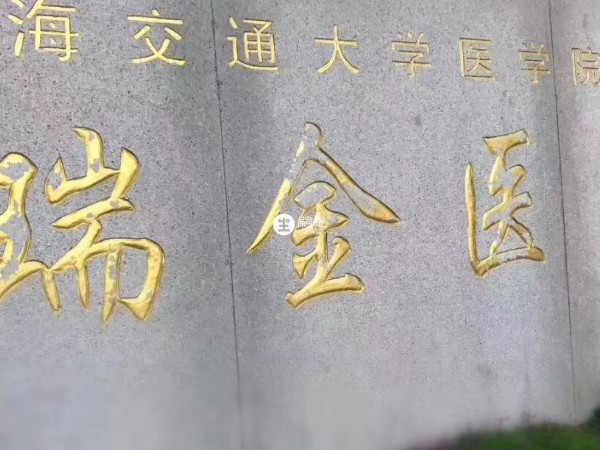 海交通大学医学院
瑞金医